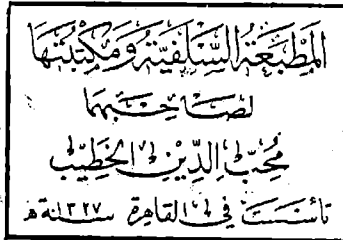 المَطْبَعَةُ السَّلَفِيَّةُ وَمَكْتَبَتُهَا
لِصَاحِبِهَا
مُحِبُّ الدِّينِ الخَطِيبِ
تأسست في القاهرة سنة ١٣٢٧ هـ